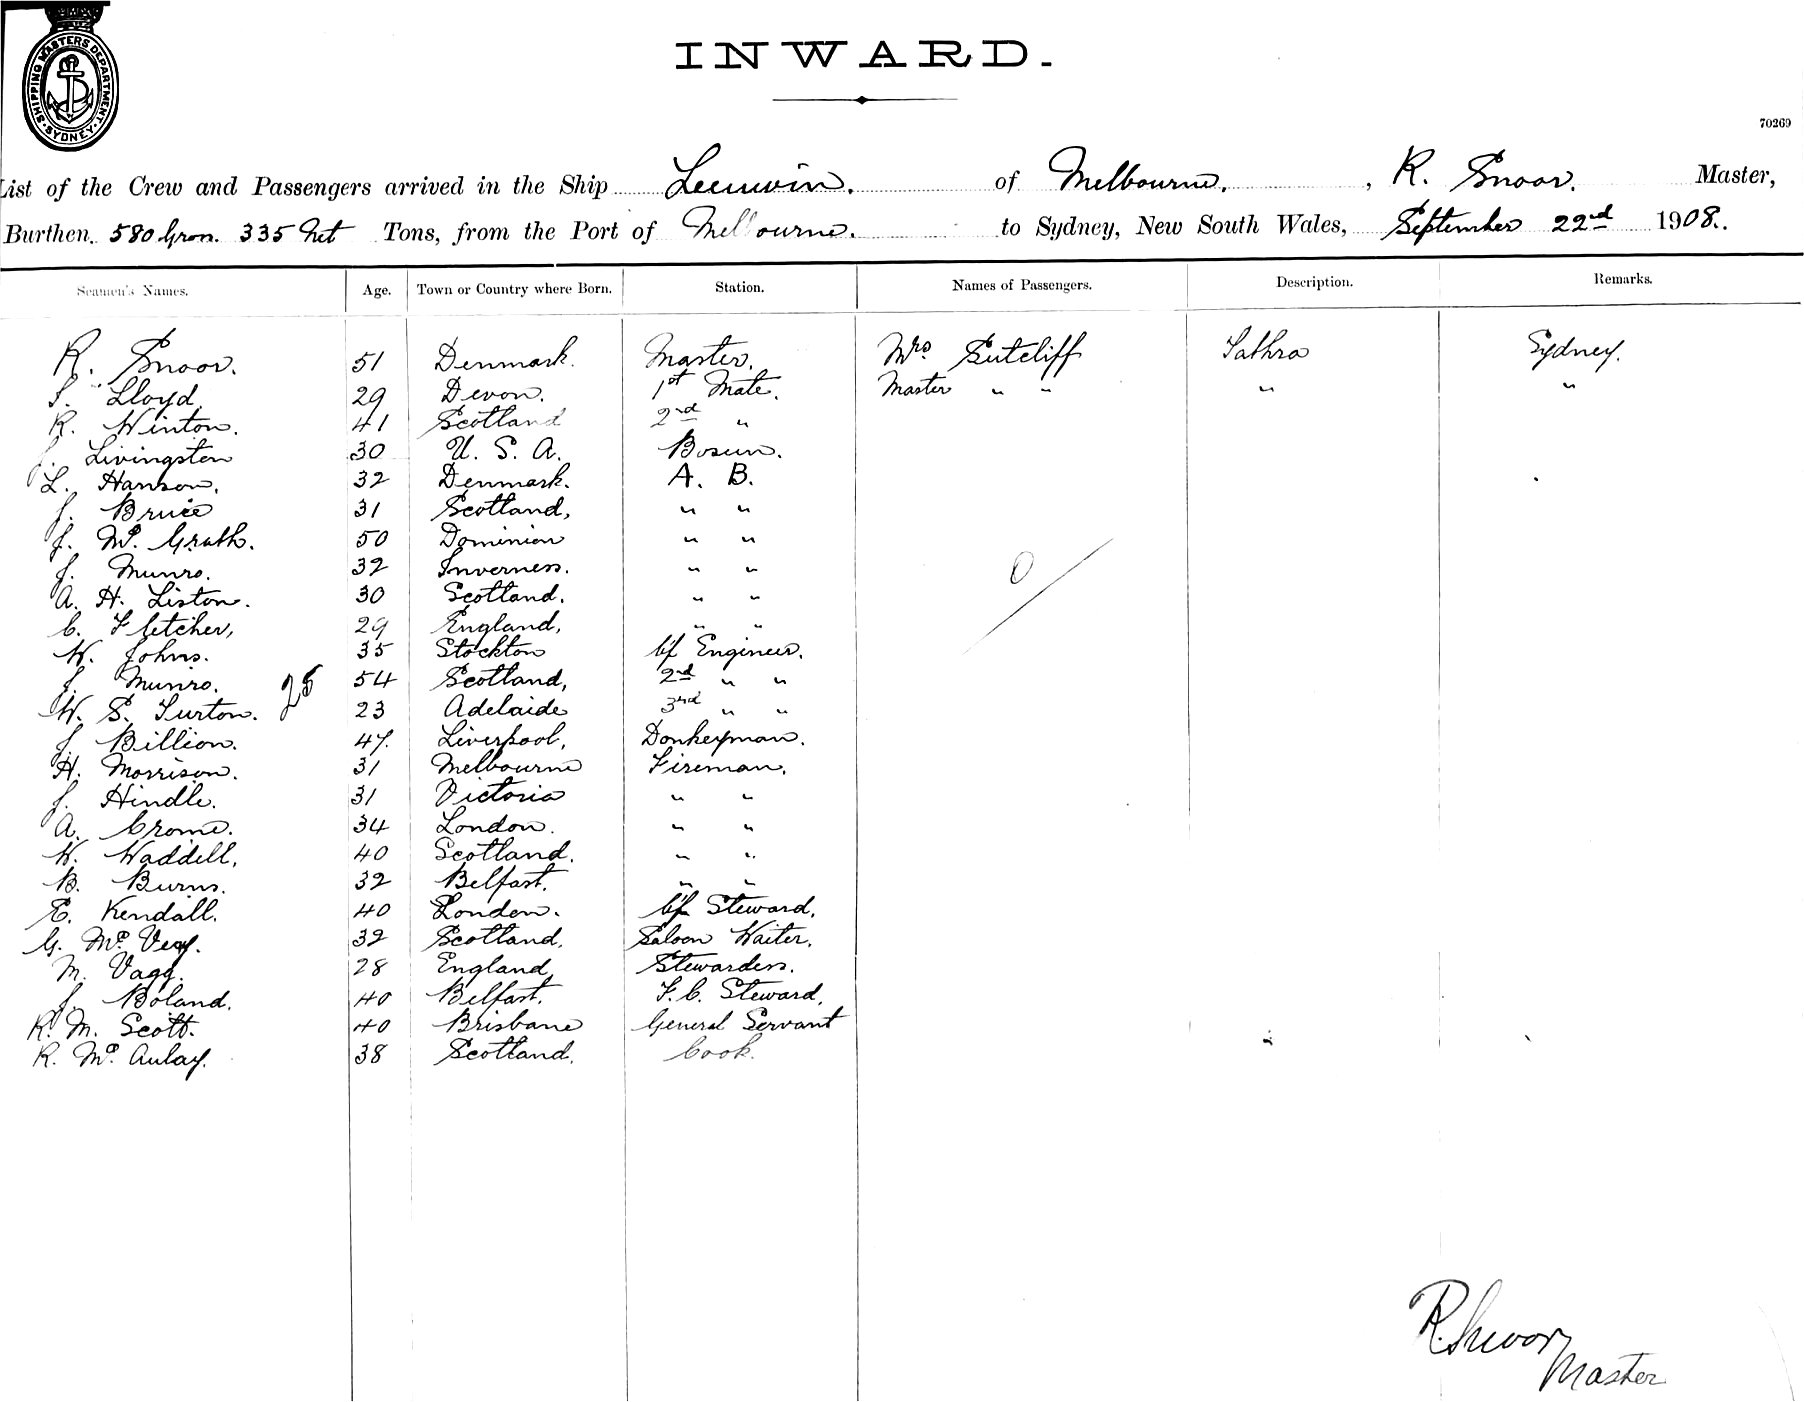 SHIPPING MASTERS DEPARTMENT
SYDNEY
INWARD.
70269
List of the Crew and Passengers arrived in the Ship Leeuwin. of Melbourne, R. Snoor. Master,
Burthen. 580 Gron. 335 Net Tons, from the Port of Melbourne. to Sydney, New South Wales, September 22nd 1908.
Seamen's Names. Age. Town or Country where Born. Station. Names of Passengers. Description. Remarks.
R. Snoor. 51 Denmark. Master. Mrs Sutcliff Sydney.
Lloyd, 29 Devon. 1st Mate. Master " " " "
R. Winton. 41 Scotland 2nd "
J. Livingston 30 U. S. A. Bosun.
L. Hanson. 32 Denmark. A. B.
J. Bruce 31 Scotland, " "
J. Mc. Grath. 50 Dominion " "
J. Munro. 32 Inverness. " "
A. H. Liston. 30 Scotland. " "
C. Fletcher, 29 England, " "
W. Johns. 35 Stockton Cf Engineer.
J. Munro. 54 Scotland, 2nd " "
25
W. S. Turton. 23 Adelaide 3rd " "
J. Billion. 47. Liverpool, Donkeyman.
H. Morrison. 31 Melbourne Fireman.
J. Hindle. 31 Victoria " "
A. Crome. 34 London. " "
W. Waddell, 40 Scotland. " "
B. Burns. 32 Belfast. " "
E. Kendall. 40 London. Cf Steward,
G. Mc Vey. 32 Scotland, Saloon Waiter.
M. Vagg. 28 England, Stewardess.
J. Boland. 40 Belfast. F. C. Steward,
R. M. Scott. 40 Brisbane General Servant
R. Mc. Aulay. 38 Scotland. Cook.
R. Snoor
Master